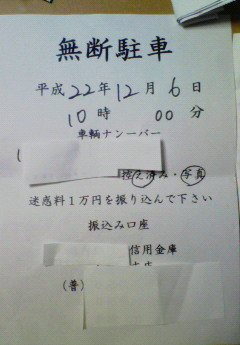 無断駐車
平成22年12月6日
10時 00分
車輌ナンーバー
(
控え済み・写真
迷惑料1万円を振り込んで下さい
振込み口座
信用金庫
(普)